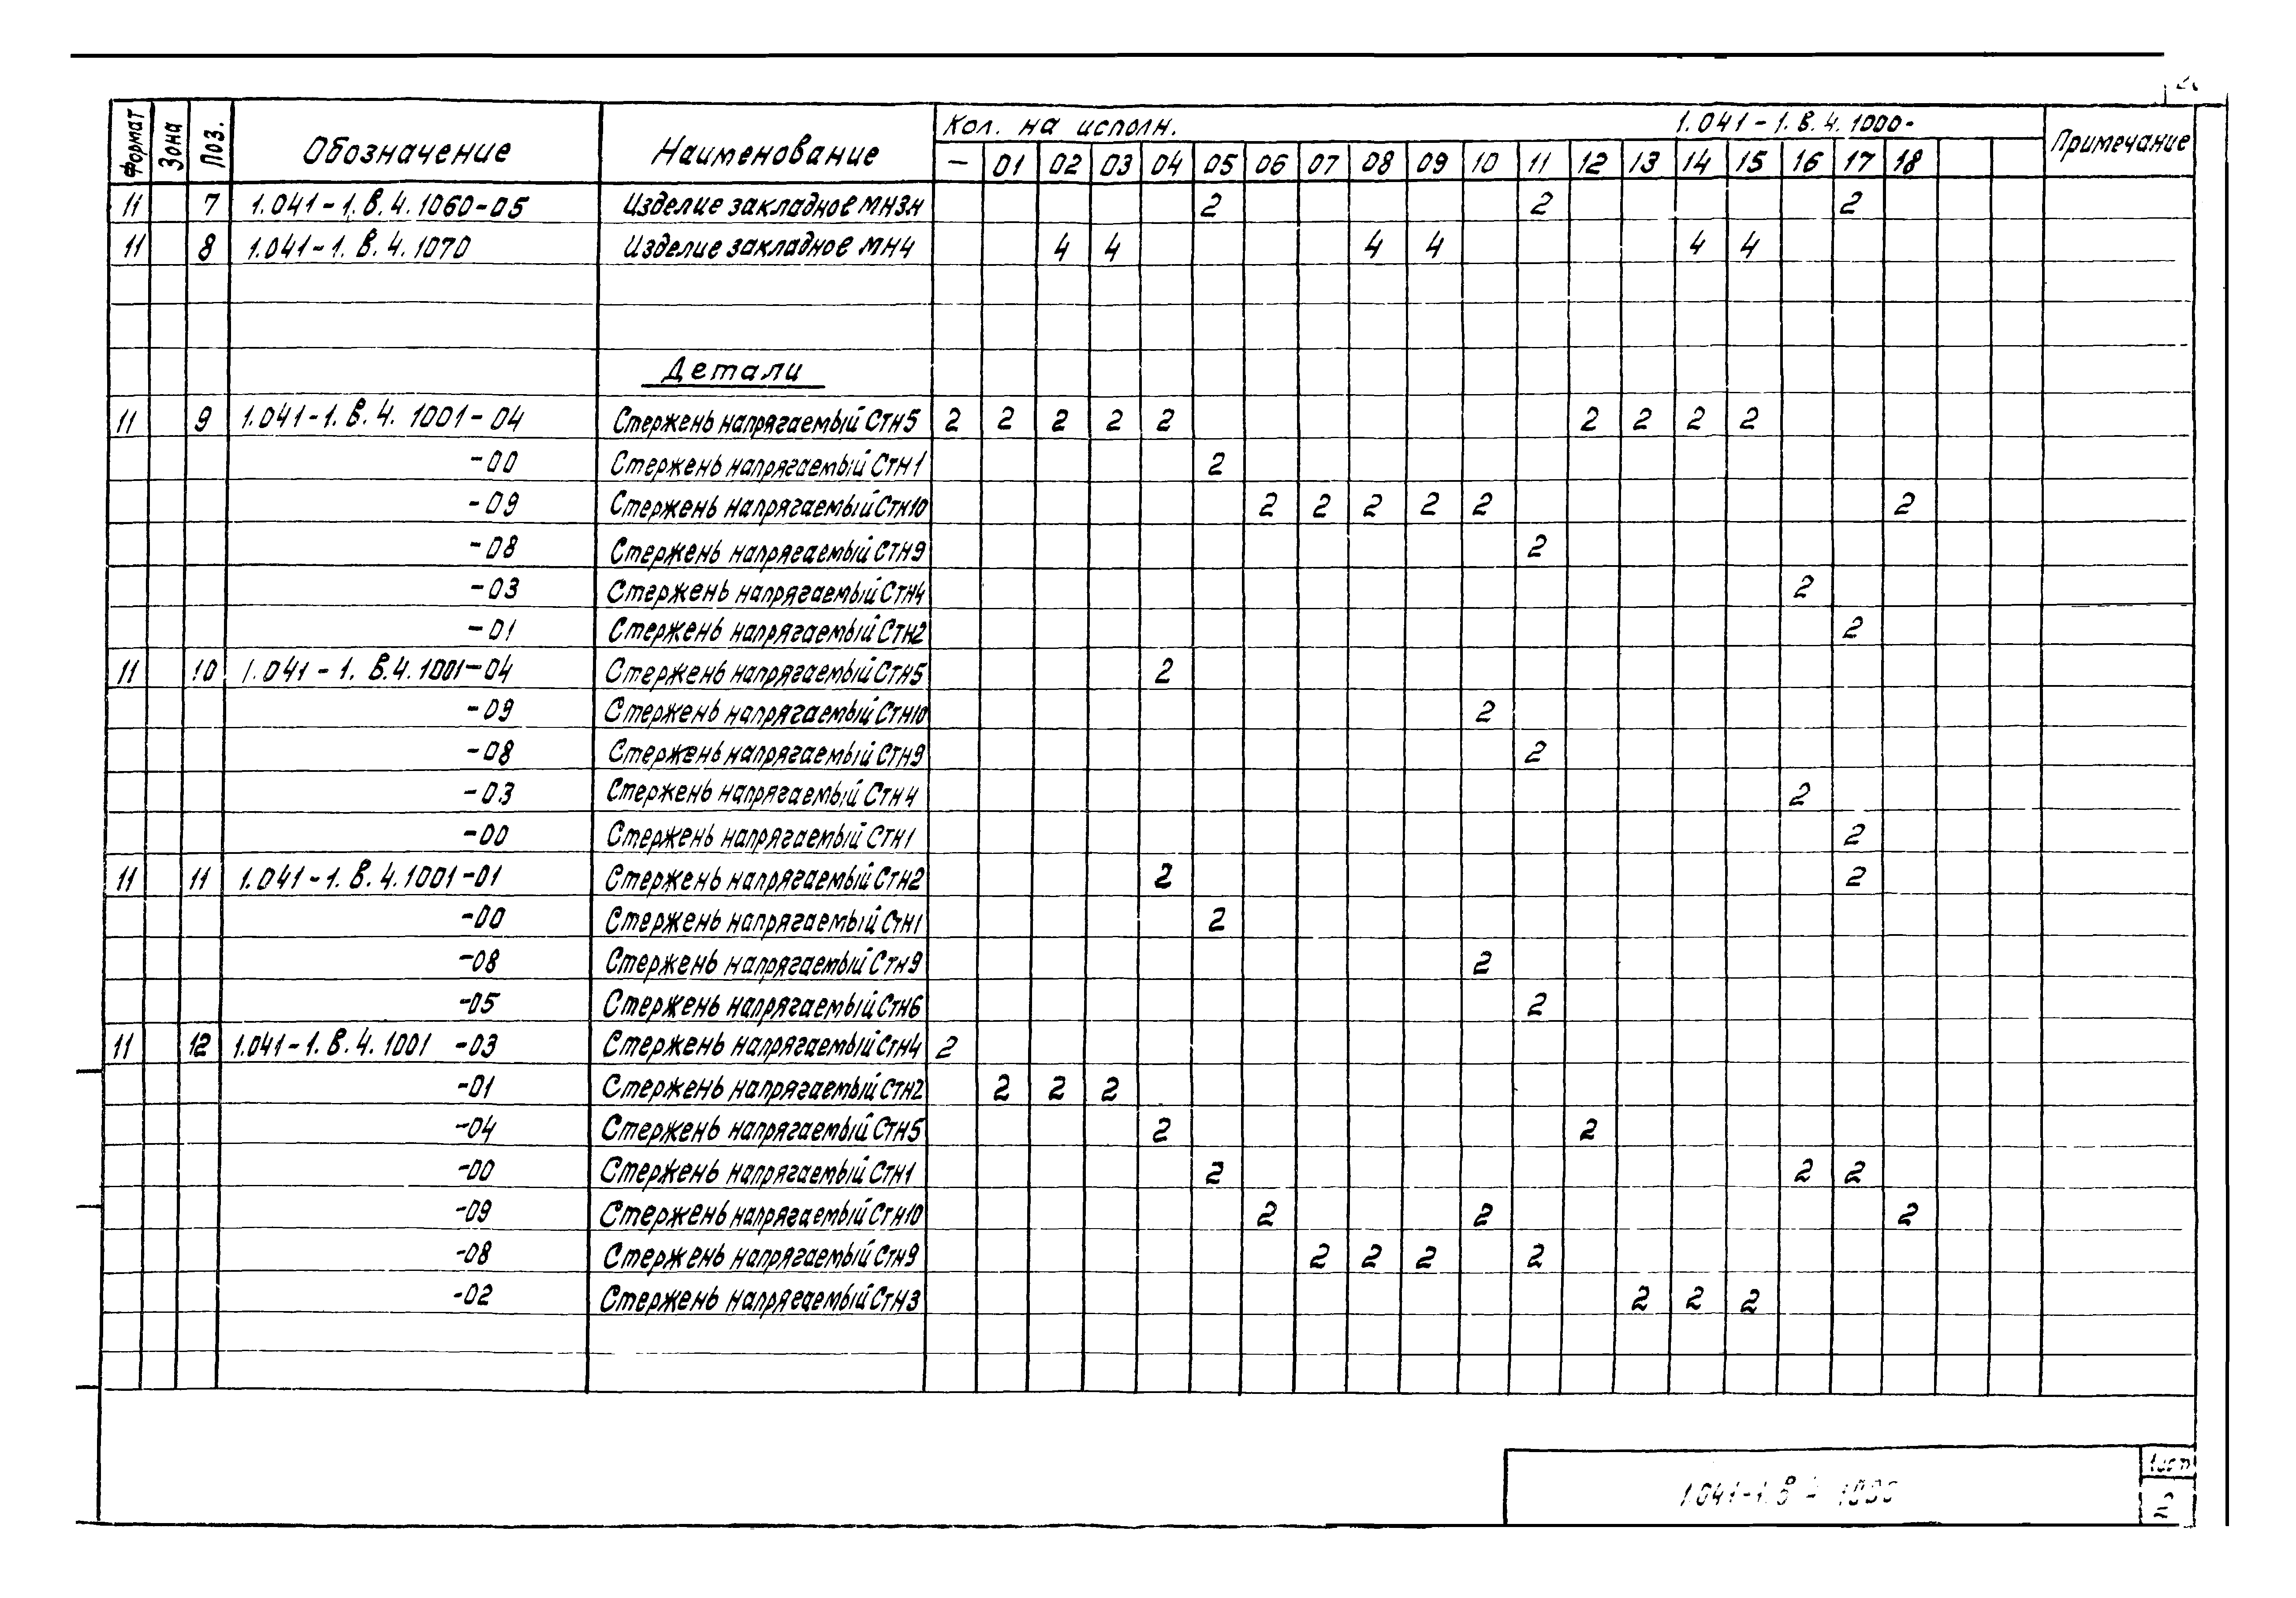 Формат Зона Поз. Обозначение Наименование Кол. на исполн. 1.041-1.В.4.1000- Примечание
— 01 02 03 04 05 06 07 08 09 10 11 12 13 14 15 16 17 18
11 7 1.041-1.В.4.1060-05 Изделие закладное МН3н 2 2 2
11 8 1.041-1.В.4.1070 Изделие закладное МН4 4 4 4 4 4 4
Детали
11 9 1.041-1.В.4.1001-04 Стержень напрягаемый Стн5 2 2 2 2 2 2 2 2 2
-00 Стержень напрягаемый Стн1 2
-09 Стержень напрягаемый Стн10 2 2 2 2 2 2
-08 Стержень напрягаемый Стн9 2
-03 Стержень напрягаемый Стн4 2
-01 Стержень напрягаемый Стн2 2
11 10 1.041-1.В.4.1001-04 Стержень напрягаемый Стн5 2
-09 Стержень напрягаемый Стн10 2
-08 Стержень напрягаемый Стн9 2
-03 Стержень напрягаемый Стн4 2
-00 Стержень напрягаемый Стн1 2
11 11 1.041-1.В.4.1001-01 Стержень напрягаемый Стн2 2 2
-00 Стержень напрягаемый Стн1 2
-08 Стержень напрягаемый Стн9 2
-05 Стержень напрягаемый Стн6 2
11 12 1.041-1.В.4.1001 -03 Стержень напрягаемый Стн4 2
-01 Стержень напрягаемый Стн2 2 2 2
-04 Стержень напрягаемый Стн5 2 2
-00 Стержень напрягаемый Стн1 2 2 2
-09 Стержень напрягаемый Стн10 2 2 2
-08 Стержень напрягаемый Стн9 2 2 2 2
-02 Стержень напрягаемый Стн3 2 2 2
Лист
1.041-1.В 1000
2